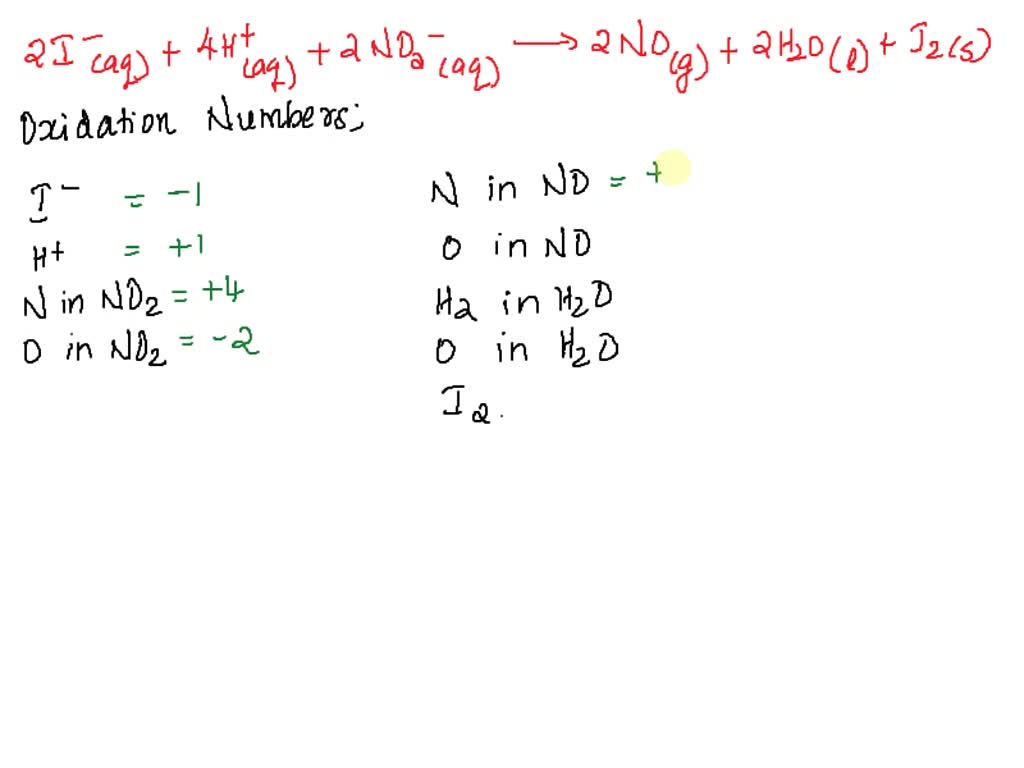 2I⁻(aq) + 4H⁺(aq) + 2NO₂⁻(aq) → 2NO(g) + 2H₂O(l) + I₂(s)
Oxidation Numbers;
I⁻ = -1
H⁺ = +1
N in NO₂ = +4
O in NO₂ = -2
N in NO = +
O in NO
H₂ in H₂O
O in H₂O
I₂.